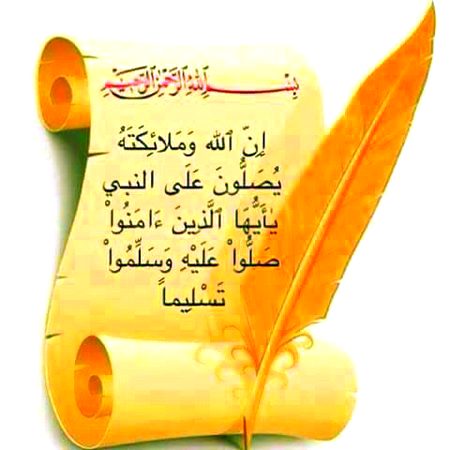 بِسْمِ اللهِ الرَّحْمٰنِ الرَّحِيْمِ
إِنّ ٱلله وَمَلائِكَتَهُ
يُصَلُّونَ عَلَى النبي
يٰأَيُّهَا ٱلَّذِينَ ءَامَنُواْ
صَلُّواْ عَلَيْهِ وَسَلِّمُواْ
تَسْلِيماً